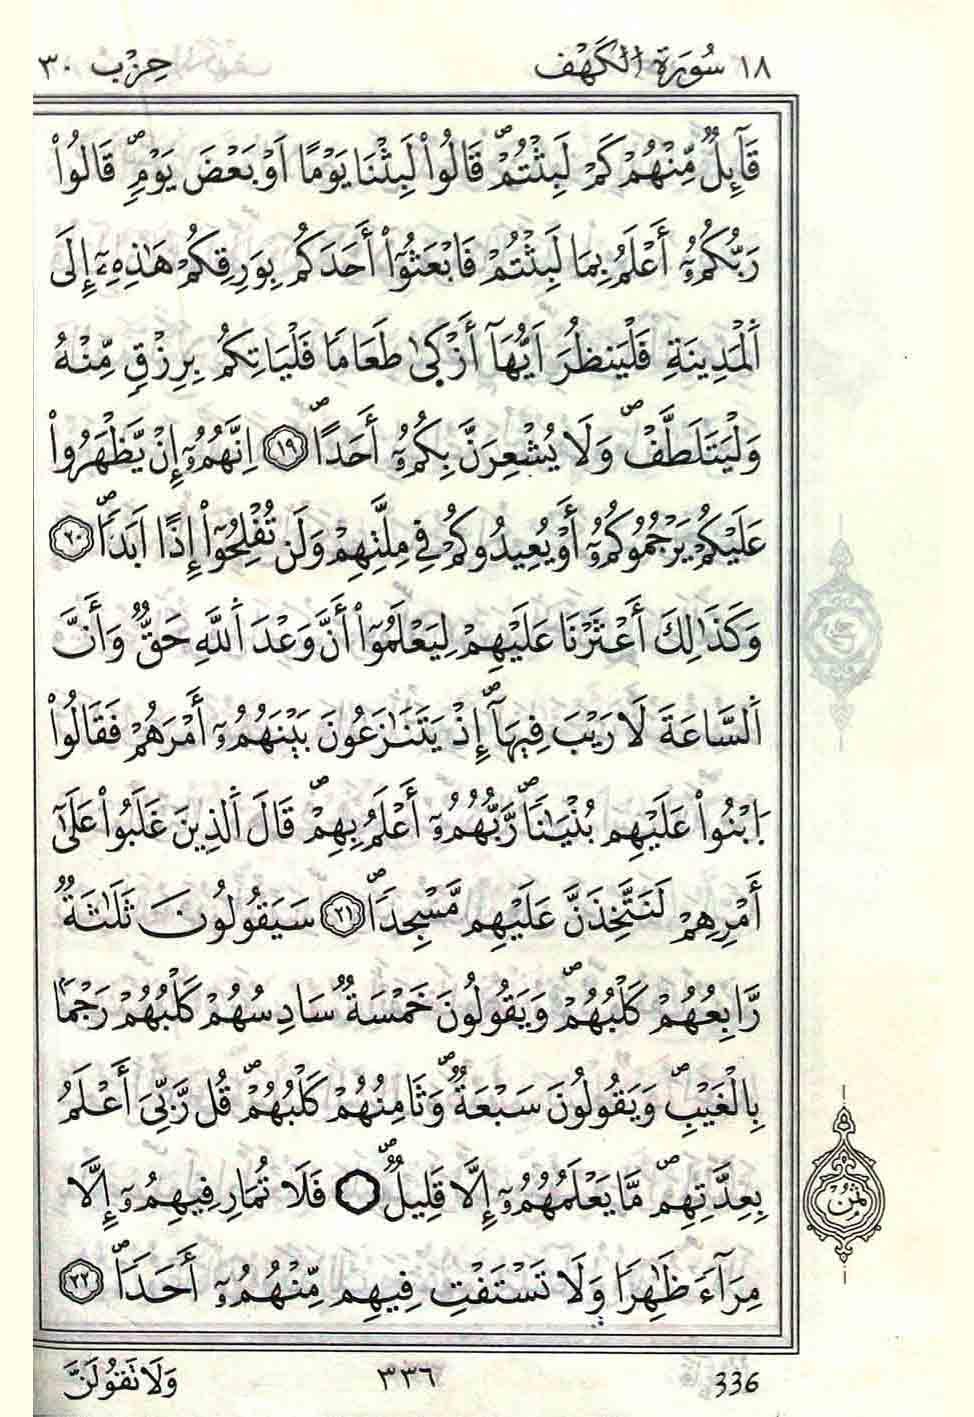 ١٨ سُورَةُ الْكَهْفِ حِزْب ٣٠
قَآئِلٞ مِّنْهُمْ كَمْ لَبِثْتُمْۖ قَالُواْ لَبِثْنَا يَوْمًا اَوْ بَعْضَ يَوْمٖۖ قَالُواْ
رَبُّكُمُۥٓ أَعْلَمُ بِمَا لَبِثْتُمْ فَابْعَثُوٓاْ أَحَدَكُم بِوَرِقِكُمْ هَٰذِهِۦٓ إِلَى
اَ۬لْمَدِينَةِ فَلْيَنظُرَ اَيُّهَآ أَزْكَىٰ طَعَامٗا فَلْيَاتِكُم بِرِزْقٖ مِّنْهُ
وَلْيَتَلَطَّفْۖ وَلَا يُشْعِرَنَّ بِكُمُۥٓ أَحَدًاۖ ١٩ اِنَّهُمُۥٓ إِنْ يَّظْهَرُواْ
عَلَيْكُمْ يَرْجُمُوكُمُۥٓ أَوْ يُعِيدُوكُمْ فِي مِلَّتِهِمْ وَلَن تُفْلِحُوٓاْ إِذًا اَبَدٗاۖ ٢٠
وَكَذَٰلِكَ أَعْثَرْنَا عَلَيْهِمْ لِيَعْلَمُوٓاْ أَنَّ وَعْدَ اَ۬للَّهِ حَقّٞ وَأَنَّ
اَ۬لسَّاعَةَ لَا رَيْبَ فِيهَآۖ إِذْ يَتَنَٰزَعُونَ بَيْنَهُمُۥٓ أَمْرَهُمْ فَقَالُواْ
اُ۪بْنُواْ عَلَيْهِم بُنْيَٰنٗاۖ رَّبُّهُمُۥٓ أَعْلَمُ بِهِمْۖ قَالَ اَ۬لذِينَ غَلَبُواْ عَلَىٰٓ
أَمْرِهِمْ لَنَتَّخِذَنَّ عَلَيْهِم مَّسْجِدٗاۖ ٢١ سَيَقُولُونَ ثَلَٰثَةٞ
رَّابِعُهُمْ كَلْبُهُمْۖ وَيَقُولُونَ خَمْسَةٞ سَادِسُهُمْ كَلْبُهُمْ رَجْماَۢ
بِالْغَيْبِۖ وَيَقُولُونَ سَبْعَةٞۖ وَثَامِنُهُمْ كَلْبُهُمْۖ قُل رَّبِّيَ أَعْلَمُ
بِعِدَّتِهِمۖ مَّا يَعْلَمُهُمُۥٓ إِلَّا قَلِيلٞۖ فَلَا تُمَارِ فِيهِمُۥٓ إِلَّا
ثُمُن
مِرَآءٗ ظَٰهِرٗا وَلَا تَسْتَفْتِ فِيهِم مِّنْهُمُۥٓ أَحَدٗاۖ ٢٢
336 ٣٣٦ وَلَا تَقُولَنَّ